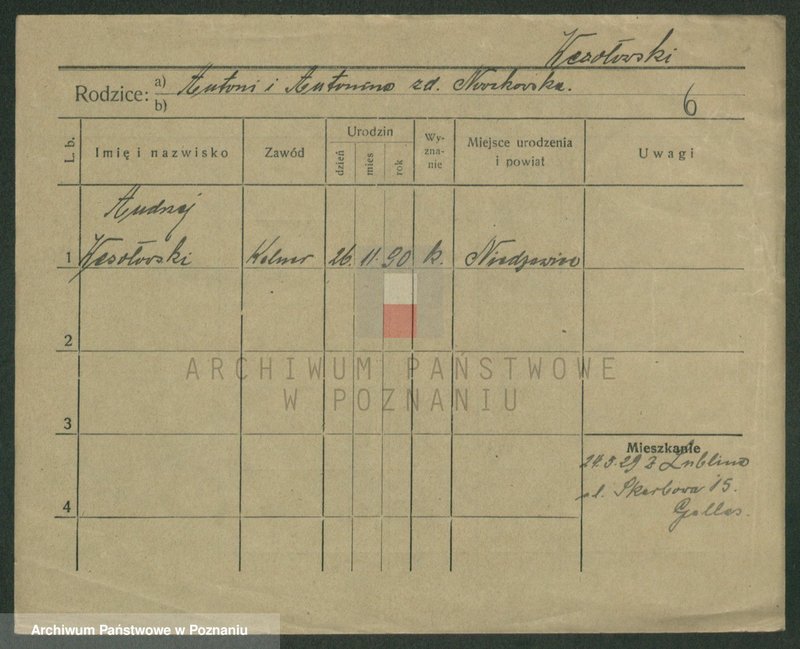 Wesołowski
Rodzice: a) Antoni i Antonina zd. Noskowska.
b)
6
L. b.
Imię i nazwisko
Zawód
Urodzin
dzień
mies
rok
Wy-
zna-
nie
Miejsce urodzenia
i powiat
Uwagi
Andrzej
1 Wesołowski Kelner 26. 11. 90 k.
2
ARCHIWUM PAŃSTWOWE
W POZNANIU
3
Mieszkanie
24.5.29 z Lublina
ul. Skarbowa 15.
Gallas.
4
Archiwum Państwowe w Poznaniu